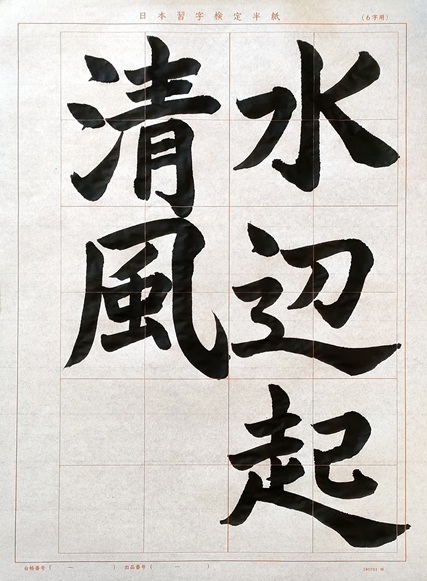 日本習字検定半紙
(6字用)
水辺起
清風